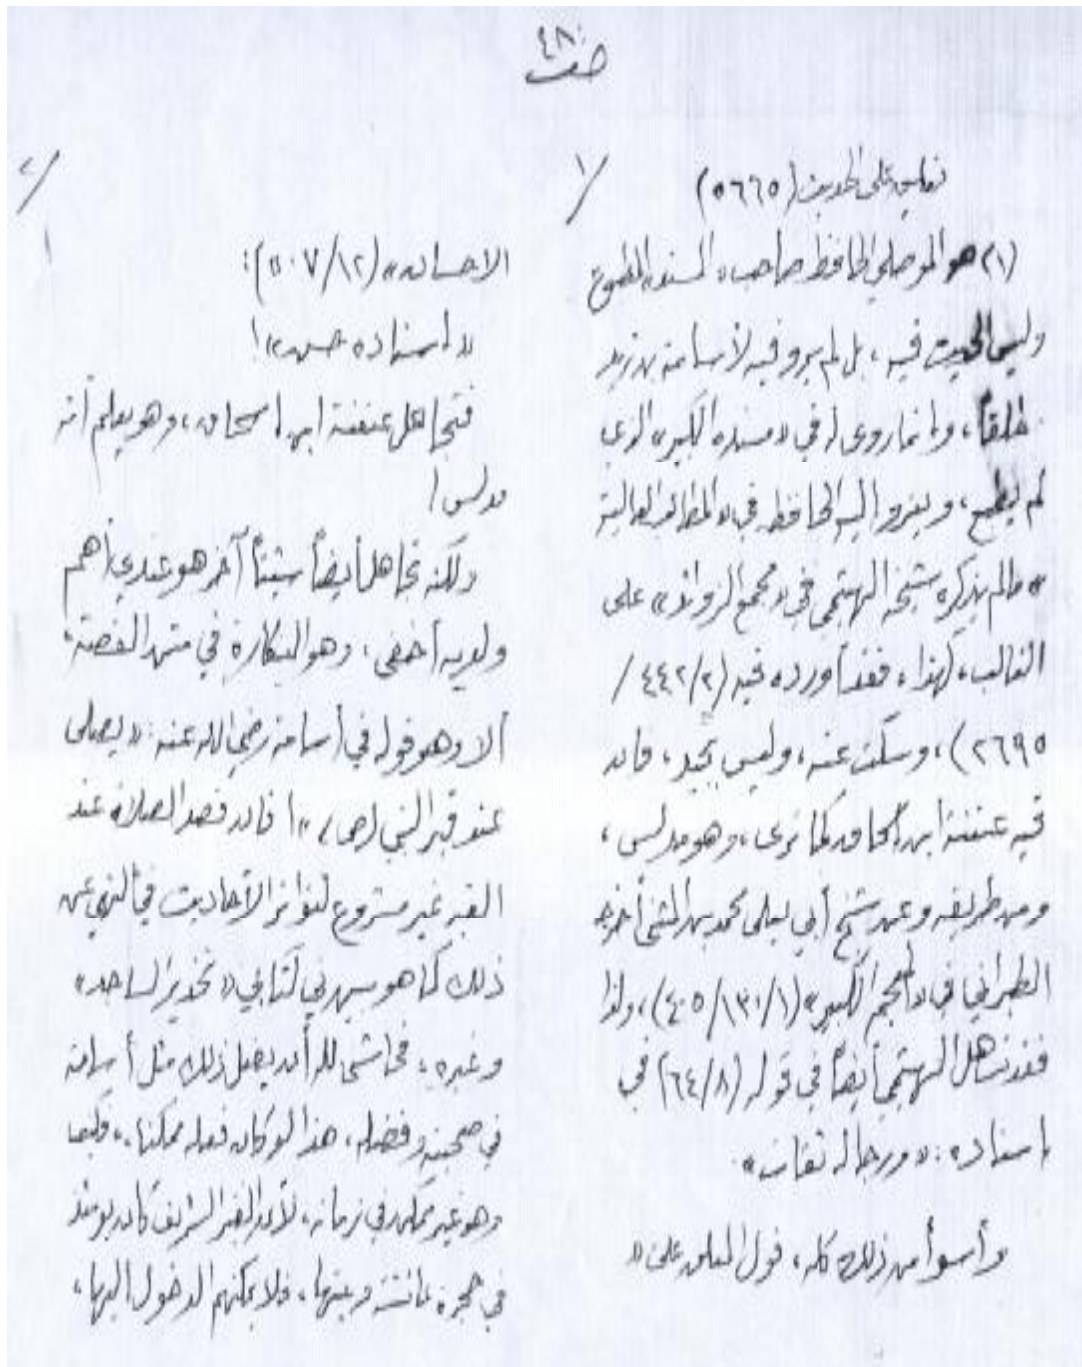 ٤٨٠
صفت
١/
تعليق على الحديث (٥٦٦٥)
(١) هو الموصلي الحافظ صاحب «المسند» المطبوع
وليس الحديث فيه، بل لم يرو فيه لأسامة بن زيد
مطلقاً، وإنما روى له في «مسنده الكبير» الذي
لم يطبع، ويعزو إليه الحافظ في «المطالب العالية
» مالم يذكره شيخه الهيثمي في «مجمع الزوائد» على
الغالب، كهذا، فقد أورده فيه (٤٤٢/٢/
٢٦٩٥)، وسكت عنه، وليس بجيد، فإن
فيه عنعنة ابن إسحاق كما ترى، وهو مدلس،
ومن طريقه وعن شيخ أبي يعلى محمد بن المثنى أخرجه
الطبراني في «المعجم الكبير» (٤٠٥/١٣٠/١)، ولذا
فقد تساهل الهيثمي أيضاً في قوله (٦٤/٨) في
إسناده: «ورجاله ثقات».
وأسوأ من ذلك كله، قول المعلق على «
٢/
الإحسان» (٥٠٧/١٢):
«إسناده حسن»!
فتجاهل عنعنة ابن إسحاق، وهو يعلم أنه
مدلس!
ولكنه تجاهل أيضاً شيئاً آخر هو عندي أهم
ولديه أخفى، وهو النكارة في متن القصة،
ألا وهو قوله في أسامة رضي الله عنه: «يصلي
عند قبر النبي (ص)»! فإن قصد الصلاة عند
القبر غير مشروع لتواتر الأحاديث في النهي عن
ذلك كما هو مبين في كتابي «تحذير الساجد»
وغيره، فحاشى لله أن يفعل ذلك مثل أسامة
في صحبته وفضله، هذا لو كان فعله ممكنا، فكيف
وهو غير ممكن في زمانه، لأن القبر الشريف كان يومئذ
في حجرة عائشة وبيتها، فلا يمكنهم الدخول إليها،